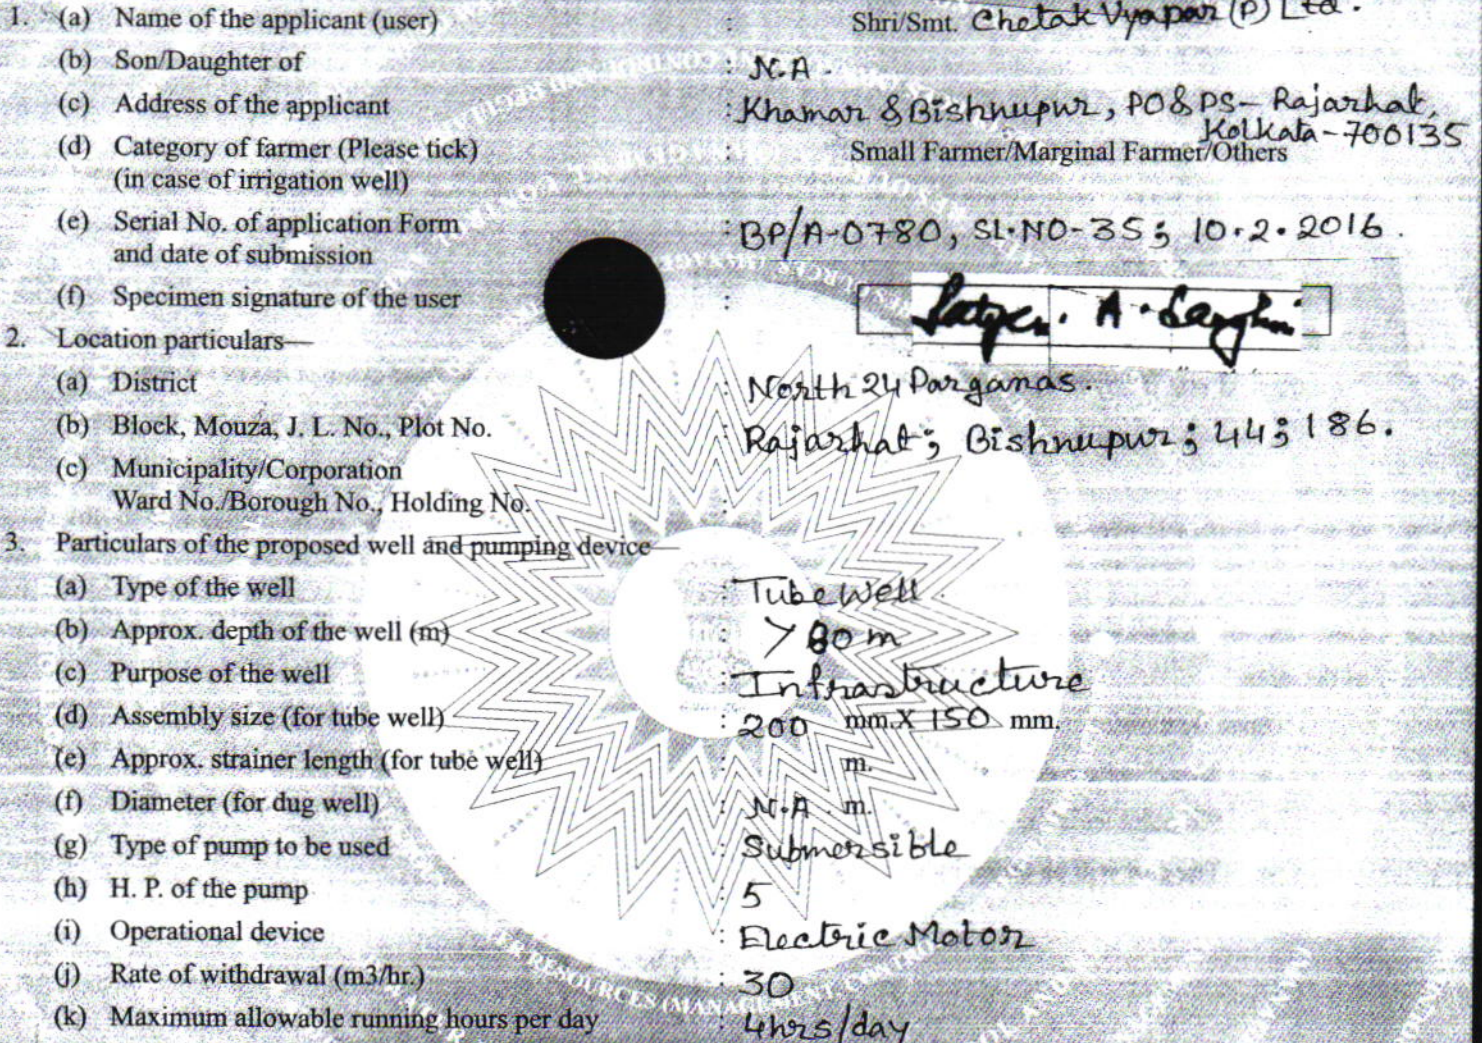 1. (a) Name of the applicant (user) : Shri/Smt. Chetak Vyapar (P) Ltd.
(b) Son/Daughter of : N.A.
(c) Address of the applicant : Khamar & Bishnupur, PO & PS- Rajarhat,
Kolkata-700135
(d) Category of farmer (Please tick) : Small Farmer/Marginal Farmer/Others
(in case of irrigation well)
(e) Serial No. of application Form : BP/A-0780, SL.NO-35; 10.2.2016.
and date of submission
(f) Specimen signature of the user :
2. Location particulars—
(a) District : North 24 Parganas.
(b) Block, Mouza, J. L. No., Plot No. : Rajarhat; Bishnupur; 44; 186.
(c) Municipality/Corporation
Ward No./Borough No., Holding No. :
3. Particulars of the proposed well and pumping device—
(a) Type of the well : Tube Well.
(b) Approx. depth of the well (m) : > 80 m
(c) Purpose of the well : Infrastructure
(d) Assembly size (for tube well) : 200 mm.X 150 mm.
(e) Approx. strainer length (for tube well) : m.
(f) Diameter (for dug well) : N.A. m.
(g) Type of pump to be used : Submersible
(h) H. P. of the pump : 5
(i) Operational device : Electric Motor
(j) Rate of withdrawal (m3/hr.) : 30
(k) Maximum allowable running hours per day : 4hrs/day